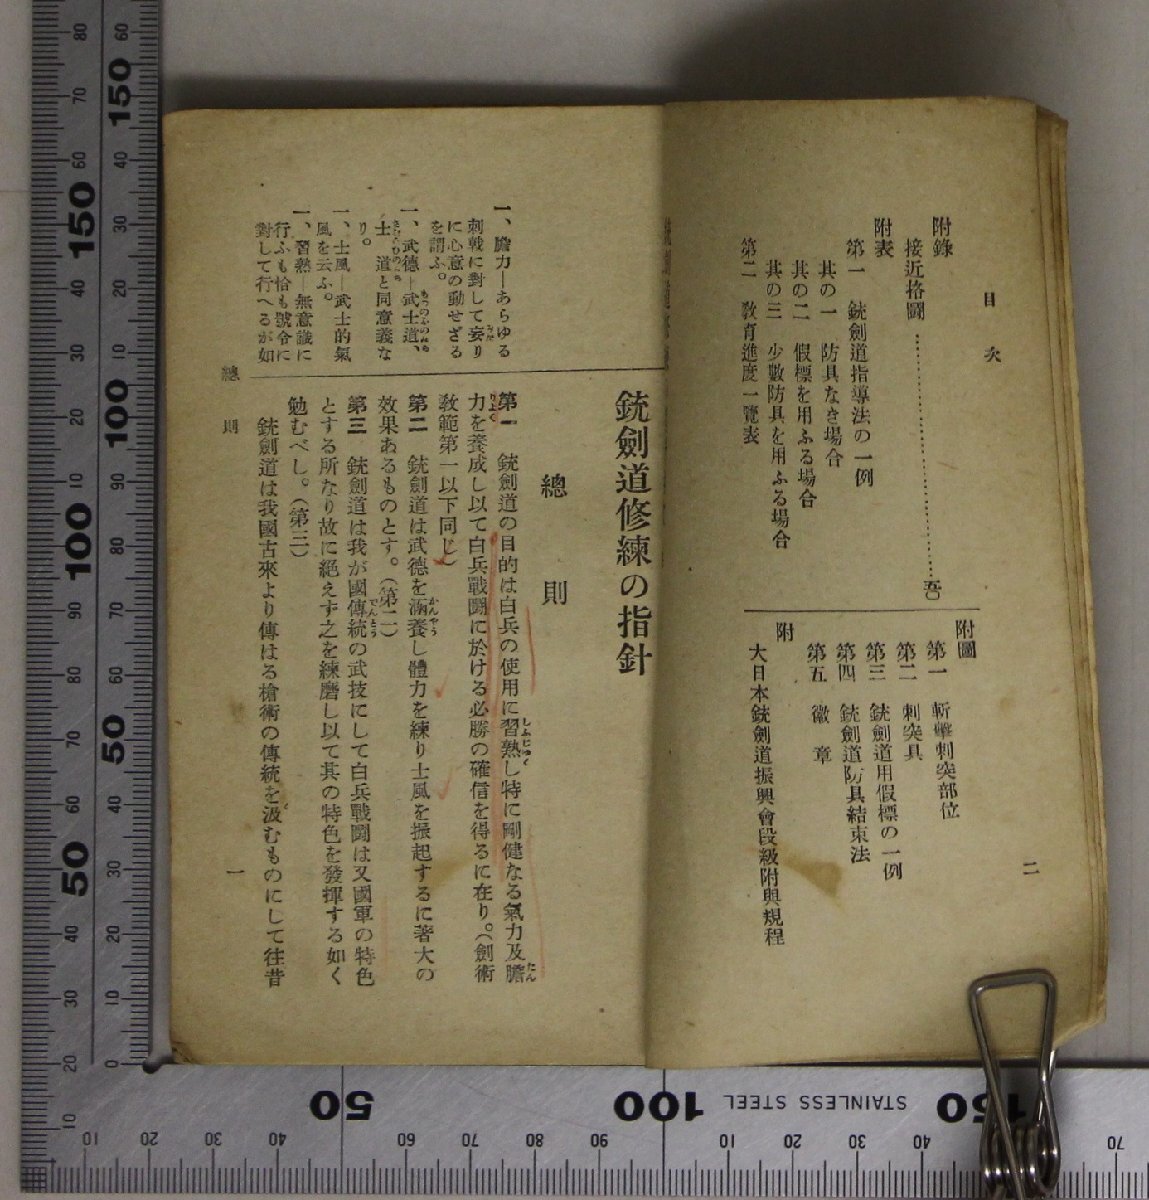 目次
附錄
接近格圖
附表
第一 銃劍道指導法の一例
其の一 防具なき場合
其の二 假標を用ふる場合
其の三 少數防具を用ふる場合
第二 敎育進度一覽表
附圖
第一 斬擊刺突部位
第二 刺突具
第三 銃劍道用假標の一例
第四 銃劍道防具結束法
第五 徽章
附
大日本銃劍道振興會段級附與規程
二
銃劍道修練の指針
總則
第一 銃劍道の目的は白兵の使用に習熟し特に剛健なる氣力及膽
力を養成し以て白兵戰鬪に於ける必勝の確信を得るに在り。(劍術
敎範第一以下同じ)
第二 銃劍道は武德を涵養し體力を練り士風を振起するに著大の
效果あるものとす。(第二)
第三 銃劍道は我が國傳統の武技にして白兵戰鬪は又國軍の特色
とする所なり故に絕えず之を練磨し以て其の特色を發揮する如く
勉むべし。(第三)
銃劍道は我國古來より傳はる槍術の傳統を汲むものにして往昔
一、膽力―あらゆる
刺戟に對して妄り
に心意の動せざる
を謂ふ。
一、武德―武士道、
士道と同意義な
り。
一、士風―武士的氣
風を云ふ。
一、習熟―無意識に
行ふも恰も號令に
對して行へるが如
總則
一
STAINLESS STEEL
50
100
150